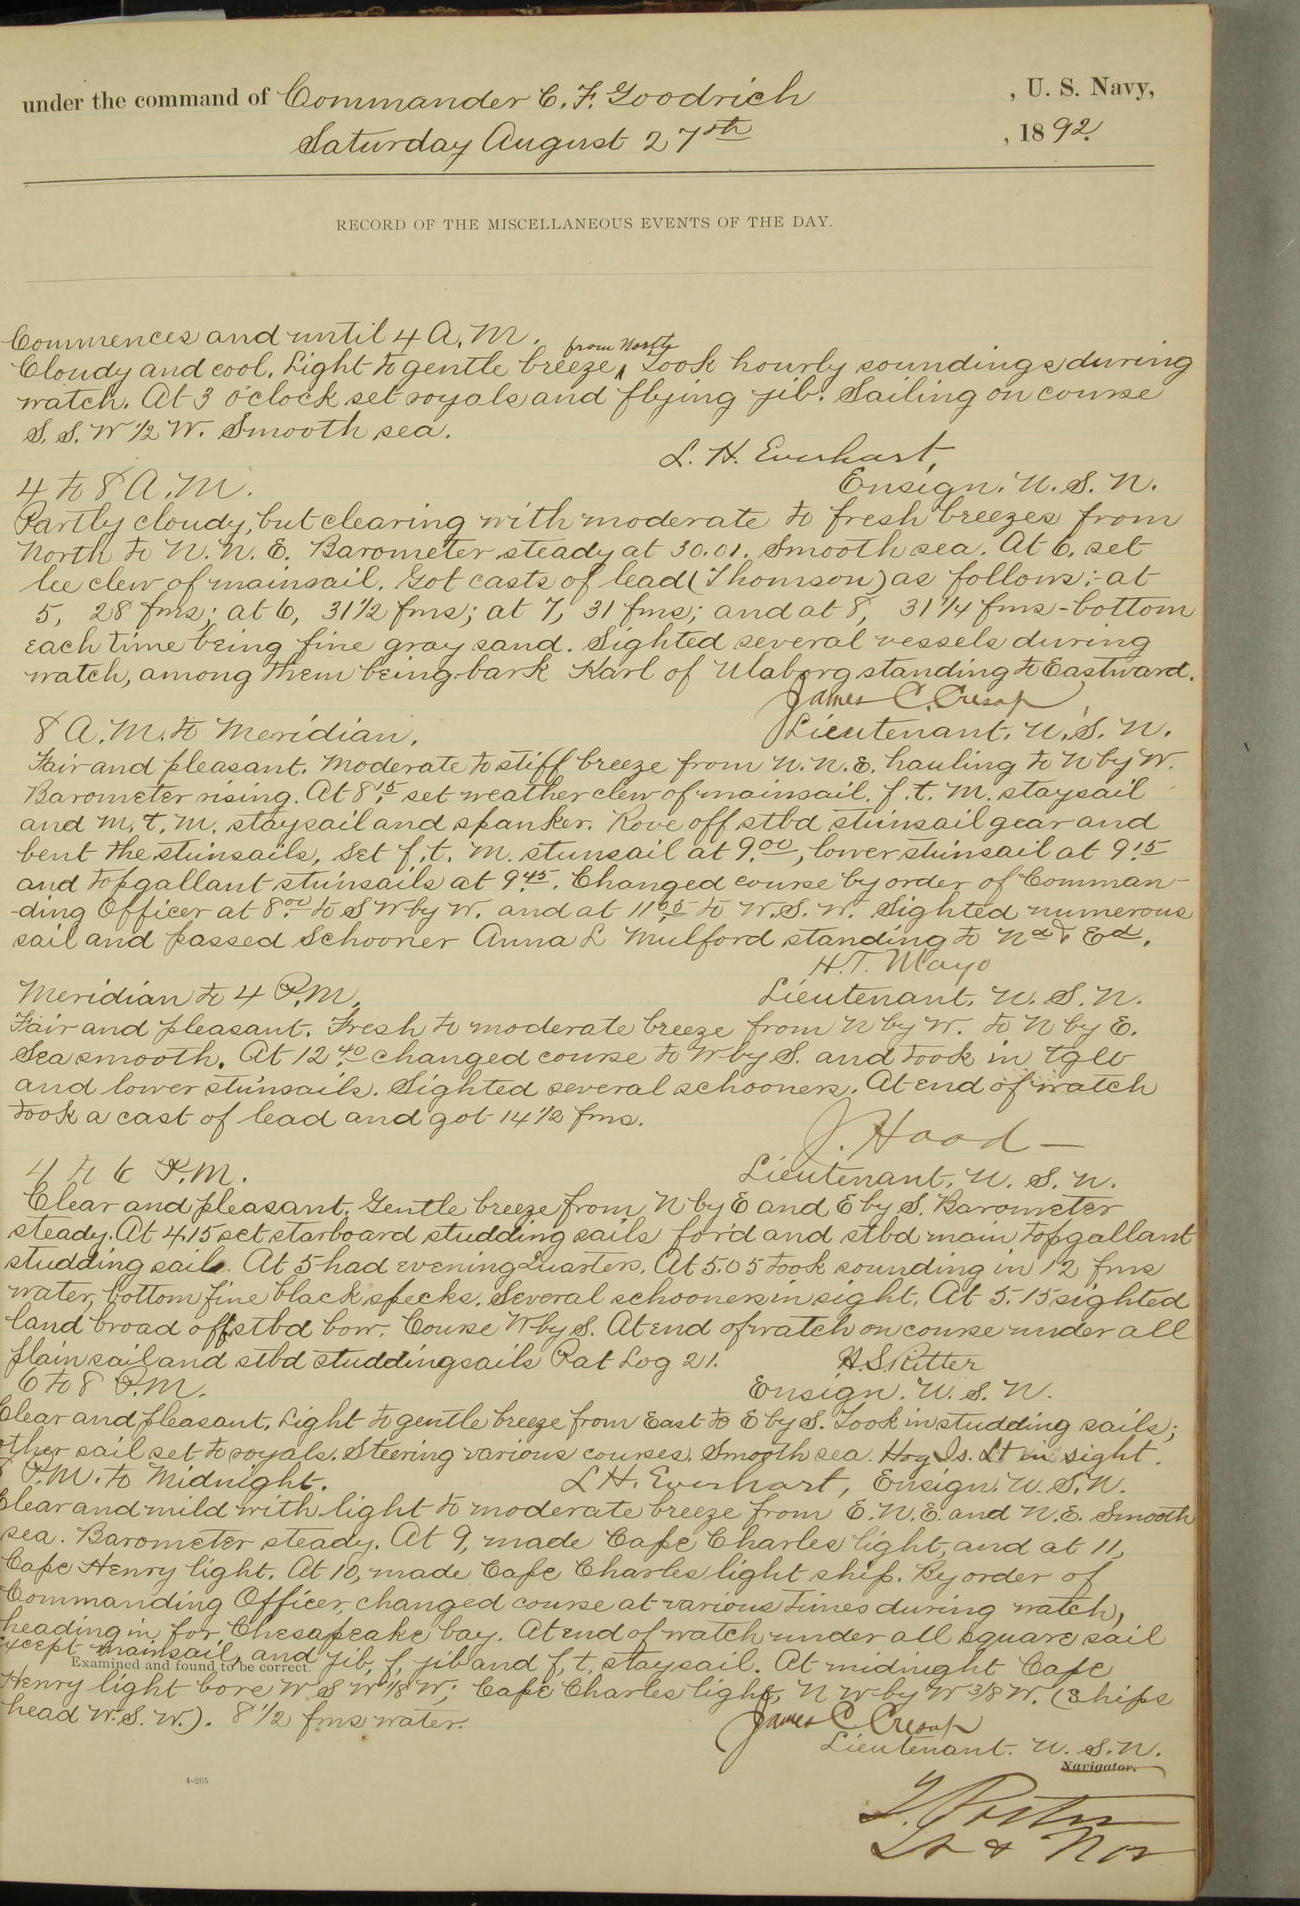 under the command of Commander C. F. Goodrich , U. S. Navy,
Saturday August 27th , 1892.
RECORD OF THE MISCELLANEOUS EVENTS OF THE DAY.
Commences and until 4 A.M.
from North
Cloudy and cool. Light to gentle breeze ^ Took hourly soundings during
watch. At 3 o'clock set royals and flying jib. Sailing on course
S. S. W 1/2 W. Smooth sea.
L. H. Everhart,
4 to 8 A.M. Ensign. U. S. N.
Partly cloudy, but clearing with moderate to fresh breezes from
North to N. N. E. Barometer steady at 30.01. Smooth sea. At 6, set
lee clew of mainsail. Got casts of lead (Thomson) as follows:- at
5, 28 fms; at 6, 31 1/2 fms; at 7, 31 fms; and at 8, 31 1/4 fms - bottom
each time being fine gray sand. Sighted several vessels during
watch, among them being bark Karl of Ulaborg standing to Eastward.
James C. Cresap,
8 A.M. to Meridian. Lieutenant. U. S. N.
Fair and pleasant. Moderate to stiff breeze from N. N. E. hauling to N by W.
Barometer rising. At 8.15 set weather clew of mainsail. f. t. M. staysail
and M. t. M. staysail and spanker. Rove off stbd stunsail gear and
bent the stunsails. Set f. t. M. stunsail at 9.00, lower stunsail at 9.15
and topgallant stunsails at 9.45. Changed course by order of Comman-
-ding Officer at 8.00 to S W by W. and at 11.05 to W. S. W. Sighted numerous
sail and passed Schooner Anna L Mulford standing to Nd & Ed.
H. T. Mayo
Meridian to 4 P.M. Lieutenant. U. S. N.
Fair and pleasant. Fresh to moderate breeze from N by W. to N by E.
Sea smooth. At 12.40 changed course to W by S. and took in tglt
and lower stunsails. Sighted several schooners. At end of watch
took a cast of lead and got 14 1/2 fms.
J. Hood —
4 to 6 P.M. Lieutenant. U. S. N.
Clear and pleasant. Gentle breeze from N by E and E by S. Barometer
steady. At 4.15 set starboard studding sails for'd and stbd main topgallant
studding sail. At 5 had evening Quarters. At 5.05 took sounding in 12 fms
water, bottom fine black specks. Several schooners in sight. At 5.15 sighted
land broad off stbd bow. Course W by S. At end of watch on course under all
plain sail and stbd studdingsails Pat Log 21. H. S. Ritter
6 to 8 P.M. Ensign. U. S. N.
Clear and pleasant. Light to gentle breeze from East to E by S. Took in studding sails;
other sail set, to royals. Steering various courses. Smooth sea. Hog Is. Lt in sight.
8 P.M. to Midnight. L. H. Everhart, Ensign. U. S. N.
Clear and mild with light to moderate breeze from E. N. E. and N. E. Smooth
sea. Barometer steady. At 9, made Cape Charles light, and at 11,
Cape Henry light. At 10, made Cape Charles light ship. By order of
Commanding Officer, changed course at various times during watch,
heading in for Chesapeake bay. At end of watch under all square sail
except mainsail, and jib, f. jib and f. t. staysail. At midnight Cape
Examined and found to be correct.
Henry light bore W S W 1/8 W; Cape Charles light, N W by W 3/8 W. (Ships
head W. S. W.). 8 1/2 fms water.
James C. Cresap
Lieutenant. U. S. N.
Navigator.
4—205